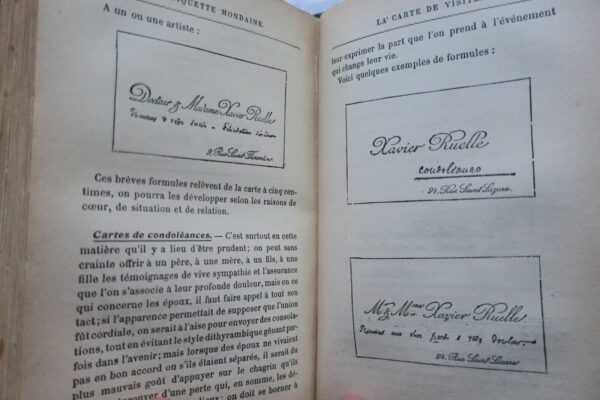 IQUETTE MONDAINE.
A un ou une artiste :
Docteur & Madame Xavier Ruelle
2, Rue Saint
Ces brèves formules relèvent de la carte à cinq cen-
times, on pourra les développer selon les raisons de
cœur, de situation et de relation.
Cartes de condoléances. — C'est surtout en cette
matière qu'il y a lieu d'être prudent; on peut sans
crainte offrir à un père, à une mère, à un fils, à une
fille les témoignages de vive sympathie et l'assurance
que l'on s'associe à leur profonde douleur, mais en ce
qui concerne les époux, il faut faire appel à tout son
tact; si l'apparence permettait de supposer que l'union
fût cordiale, on serait à l'aise pour envoyer des consola-
tions, tout en évitant le style dithyrambique gênant par-
fois dans l'avenir; mais lorsque des époux ne vivaient
pas en bon accord ou s'ils étaient séparés, il serait du
plus mauvais goût d'appuyer sur le chagrin qu'ils
éprouver d'une perte qui, en somme, les dé-
on doit se borner à
LA CARTE DE VISITE
leur exprimer la part que l'on prend à l'événement
qui change leur vie.
Voici quelques exemples de formules :
Xavier Ruelle
condoléances
94, Rue Saint Lazare.
Mr & Mme Xavier Ruelle
douleur.
94, Rue Saint Lazare